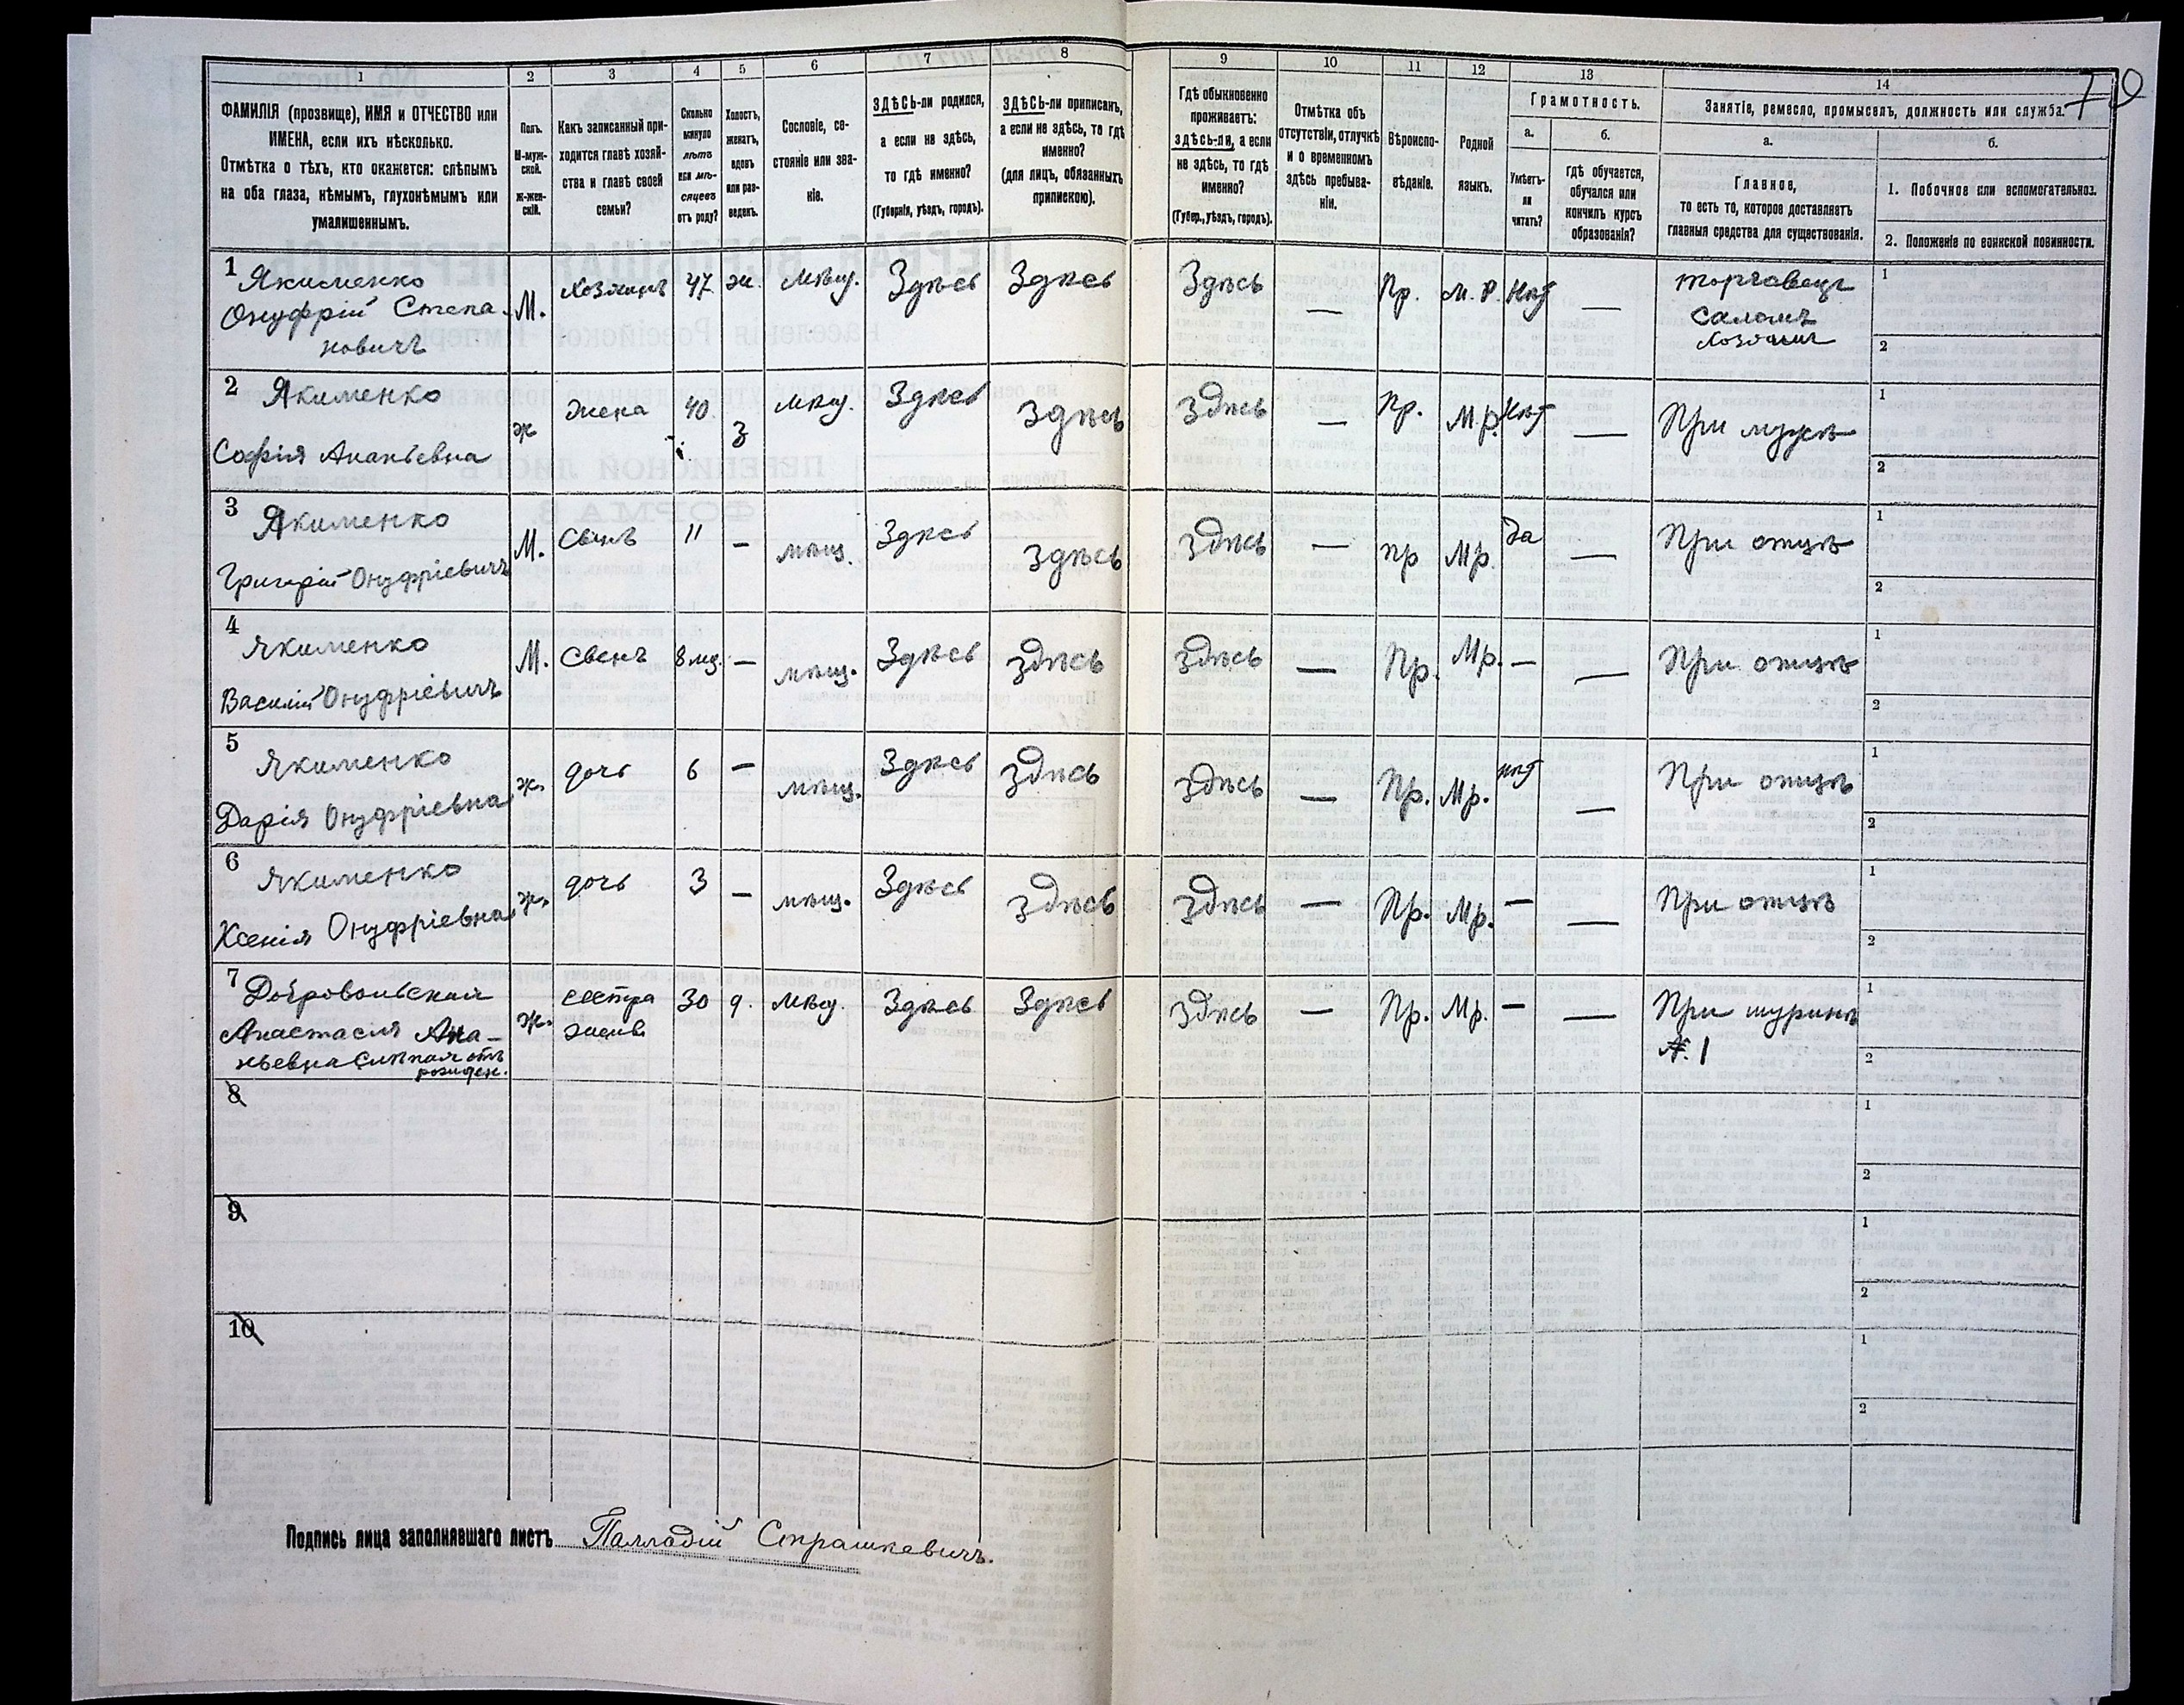 79
1 2 3 4 5 6 7 8 9 10 11 12 13 14
ФАМИЛІЯ (прозвище), ИМЯ и ОТЧЕСТВО или
ИМЕНА, если ихъ нѣсколько.
Отмѣтка о тѣхъ, кто окажется: слѣпымъ
на оба глаза, нѣмымъ, глухонѣмымъ или
умалишеннымъ.
Полъ.
М-муж-
ской.
ж-жен-
скій.
Какъ записанный при-
ходится главѣ хозяй-
ства и главѣ своей
семьи?
Сколько
минуло
лѣтъ
или мѣ-
сяцевъ
отъ роду?
Холостъ,
женатъ,
вдовъ
или раз-
веденъ.
Сословіе, со-
стояніе или зва-
ніе.
ЗДѢСЬ-ли родился,
а если не здѣсь,
то гдѣ именно?
(Губернія, уѣздъ, городъ).
ЗДѢСЬ-ли приписанъ,
а если не здѣсь, то гдѣ
именно?
(для лицъ, обязанныхъ
припискою).
Гдѣ обыкновенно
проживаетъ:
здѣсь-ли, а если
не здѣсь, то гдѣ
именно?
(Губер., уѣздъ, городъ).
Отмѣтка объ
отсутствіи, отлучкѣ
и о временномъ
здѣсь пребыва-
ніи.
Вѣроиспо-
вѣданіе.
Родной
языкъ.
Грамотность.
а.
Умѣетъ-
ли
читать?
б.
гдѣ обучается,
обучался или
кончилъ курсъ
образованія?
Занятіе, ремесло, промыселъ, должность или служба.
а.
Главное,
то есть то, которое доставляетъ
главныя средства для существованія.
б.
1. Побочное или вспомогательное.
2. Положеніе по воинской повинности.
1 Якименко
Онуфрій Степа-
новичъ
М. Хозяинъ 47 ж. Мѣщ. Здѣсь Здѣсь Здѣсь — Пр. М. Р. Нѣт —
торговецъ
саломъ
хозяинъ
1
2
2 Якименко
Софія Ананьевна
ж жена 40 з мѣщ. Здѣсь Здѣсь Здѣсь — Пр. М.р. Нѣт — При мужѣ
1
2
3 Якименко
Григорій Онуфріевичъ
М. Свынъ 11 — мѣщ. Здѣсь Здѣсь Здѣсь — пр Мр. Да — При отцѣ
1
2
4 Якименко
Василій Онуфріевичъ
М. Свенъ 8 мц. — мѣщ. Здѣсь Здѣсь Здѣсь — Пр. Мр. — — При отцѣ
1
2
5 Якименко
Дарія Онуфріевна
ж. дочь 6 — мѣщ. Здѣсь Здѣсь Здѣсь — Пр. Мр. нѣт — При отцѣ
1
2
6 Якименко
Ксенія Онуфріевна
ж. дочь 3 — мѣщ. Здѣсь Здѣсь Здѣсь — Пр. Мр. — — При отцѣ
1
2
7 Добровольская
Анастасія Ана-
ньевна слѣпая отъ
рожден.
ж. сестра
жены
30 д. Мѣщ. Здѣсь Здѣсь Здѣсь — Пр. Мр. — — При шуринѣ
№. 1
1
2
8
1
2
9
1
2
10
1
2
Подпись лица заполнявшаго листъ Палладій Страшкевичъ.